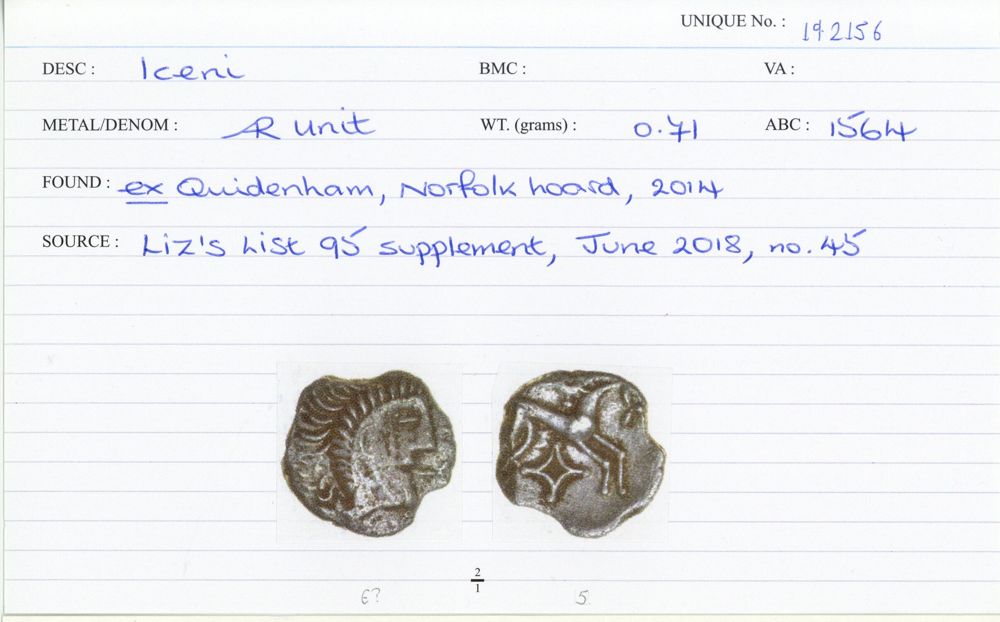 UNIQUE No. : 192156
DESC : Iceni BMC : VA :
METAL/DENOM : AR Unit WT. (grams) : 0.71 ABC : 1564
FOUND : ex Quidenham, Norfolk hoard, 2014
SOURCE : Liz's List 95 supplement, June 2018, no. 45
2
1
6? 5